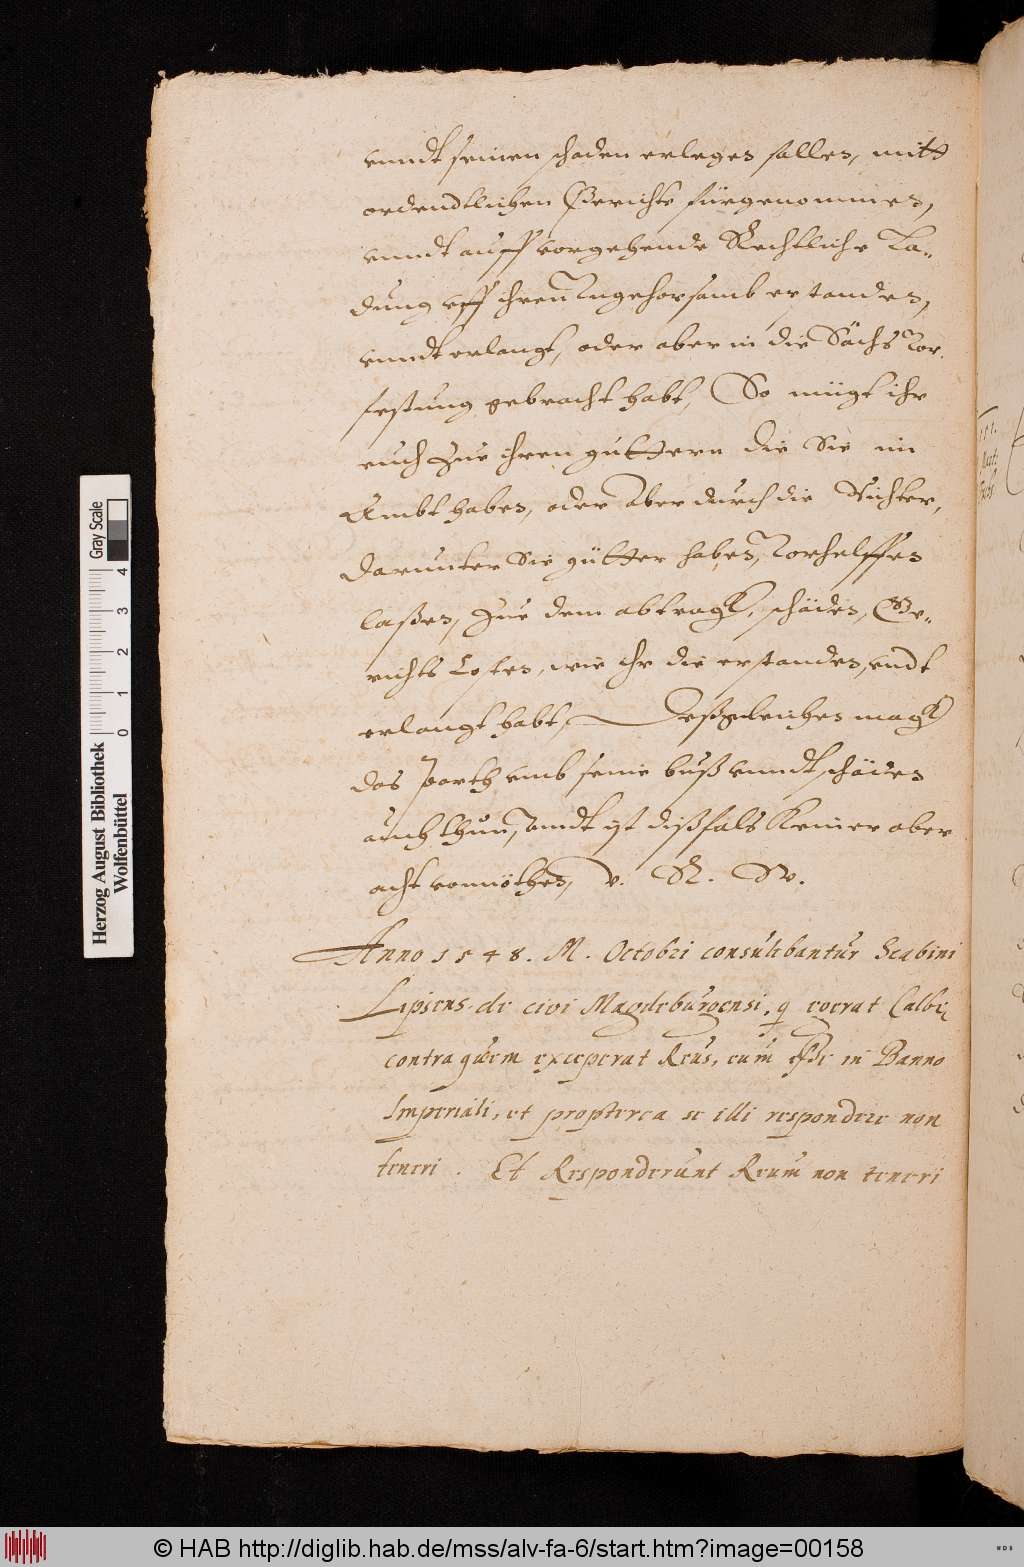 vnndt seinen schaden erleges halles, mitt
ordendtlichen Gerichte fürgenommes,
vnndt auff vorgehende Rechtliche La=
dung vff ihren Vngehorsamb erstandes,
vnndt erlangt, oder aber in die Sächs Vor
festung gebracht habt, So mügt ihr
euch Zue ihren guttern die Sie im
Ambt habes, oder Aber durch die Richter,
darunter Sie gütter habes, Vorhelffes
laßes, Zue dem abtragk, schädes, Ge=
richts Costes, wie ihr die erstandes, vndt
erlangt habt, Deßgleiches magk
das parth vmb seine buß vnndt schädes
auch thun, Vnndt ist dißfals Keiner aber
acht vonnöthes, v. R. W.
Anno 1548. M. Octobri consulebantur Scabini
Lipsens. de civi Magdeburgensi, q vocrat Calbe
contra quem exceperat Reus, eum esse in Banno
Imperiali, et propterea se illi respondere non
teneri. Et Responderunt Reum non teneri
Herzog August Bibliothek
Wolfenbüttel
0 1 2 3 4
Gray Scale
© HAB http://diglib.hab.de/mss/alv-fa-6/start.htm?image=00158